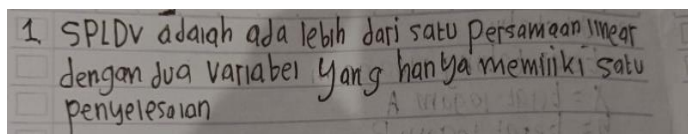 1 SPLDV adalah ada lebih dari satu persamaan linear
dengan dua variabel yang hanya memiliki satu
penyelesaian